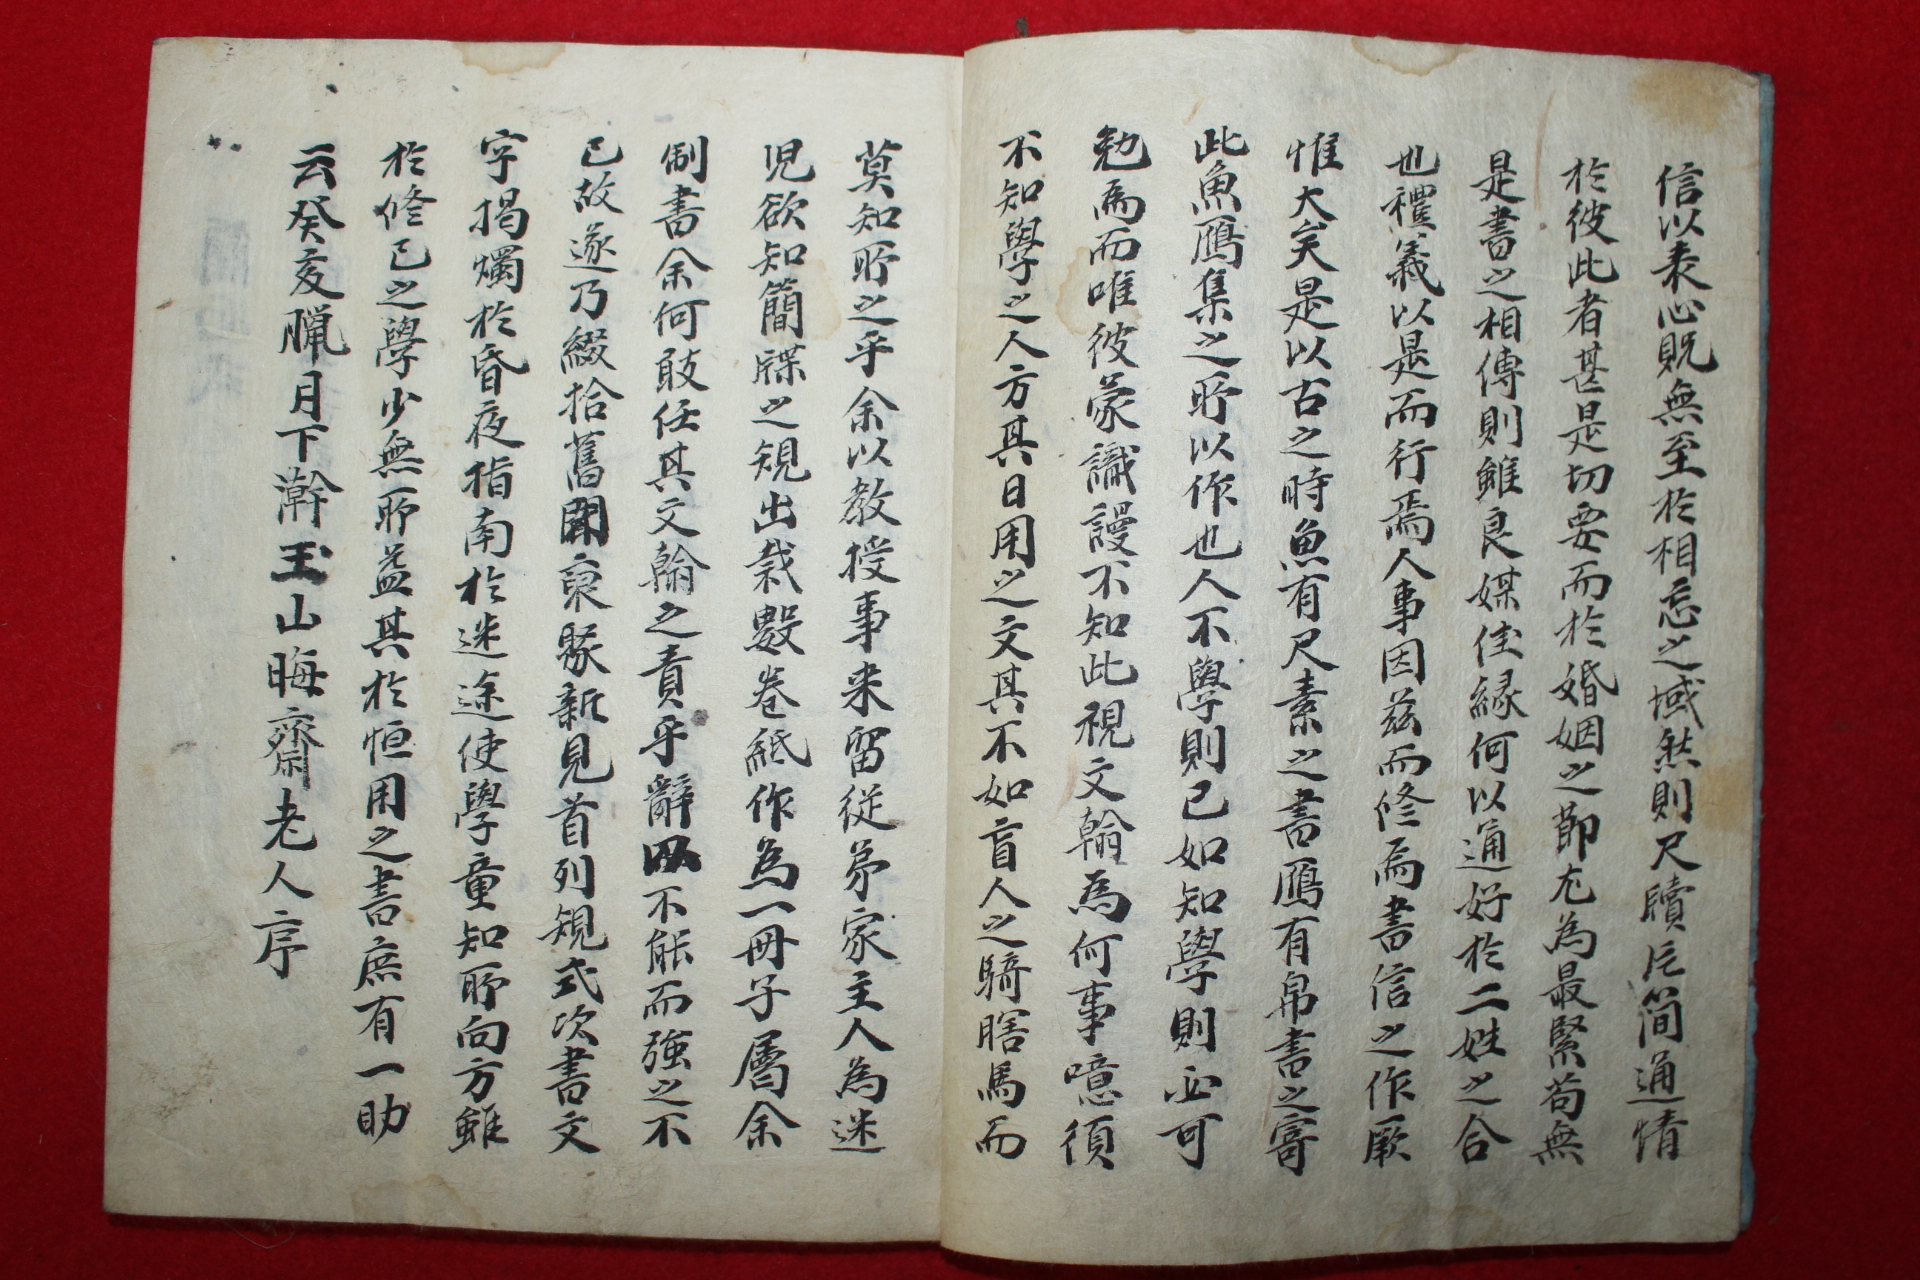 信以表心旣無至於相忘之域然則尺牘片简通情
於彼此者甚是切要而於婚姻之節尤為最緊苟無
是書之相傳則雖良媒佳緣何以通好於二姓之合
也禮義以是而行焉人事因玆而修焉書信之作厥
惟大矣是以古之時魚有尺素之書鴈有帛書之寄
此魚鴈集之所以作也人不學則已如知學則必可
勉焉而唯彼蒙識謾不知此視文翰為何事噫須
不知學之人方其日用之文其不如盲人之騎瞎馬而
莫知所之乎余以教授事来留従弟家主人為迷
児欲知簡牒之規出栽數巻紙作為一冊子屬余
制書余何敢任其文翰之責乎辭以不能而強之不
已故遂乃綴拾舊聞裒聚新見首列規式次書文
字揭燭於昏夜指南於迷途使學童知所向方雖
於修己之學少無所益其於恒用之書庶有一助
云癸亥臘月下澣玉山晦齋老人序